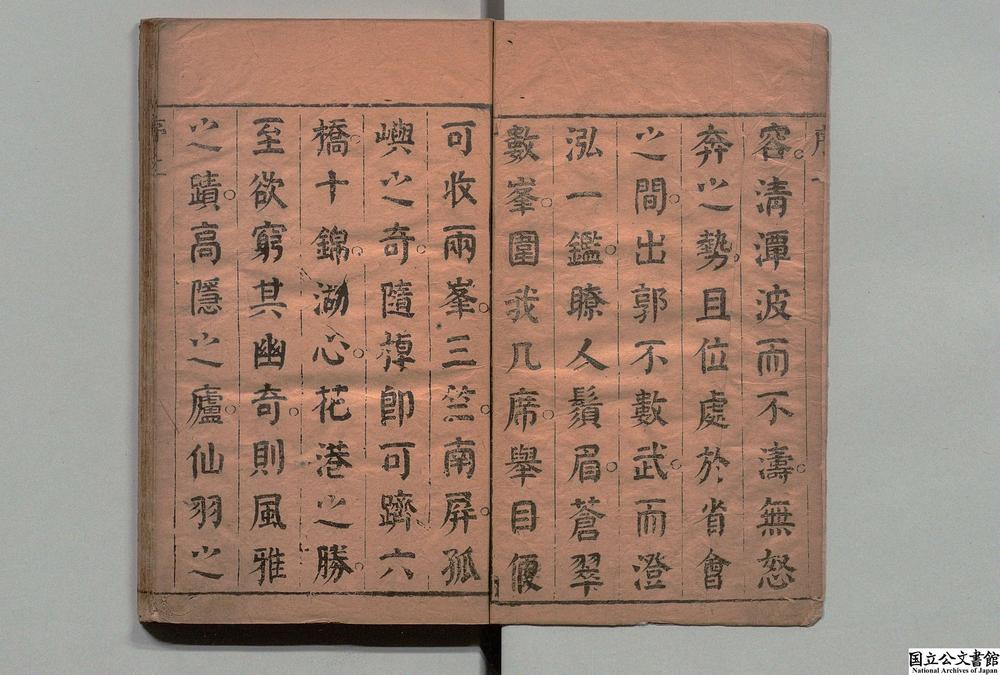 容。清潭波而不濤。無怒
奔之勢。且位處於省會
之間。出郭不數武。而澄
泓一鑑。瞭人鬚眉。蒼翠
數峯。圍我几席。舉目便
可收兩峯。三竺。南屏。孤
嶼之奇。隨棹即可躋六
橋。十錦。湖心。花港之勝。
至欲窮其幽奇。則風雅
之蹟。高隱之廬。仙羽之
国立公文書館
National Archives of Japan